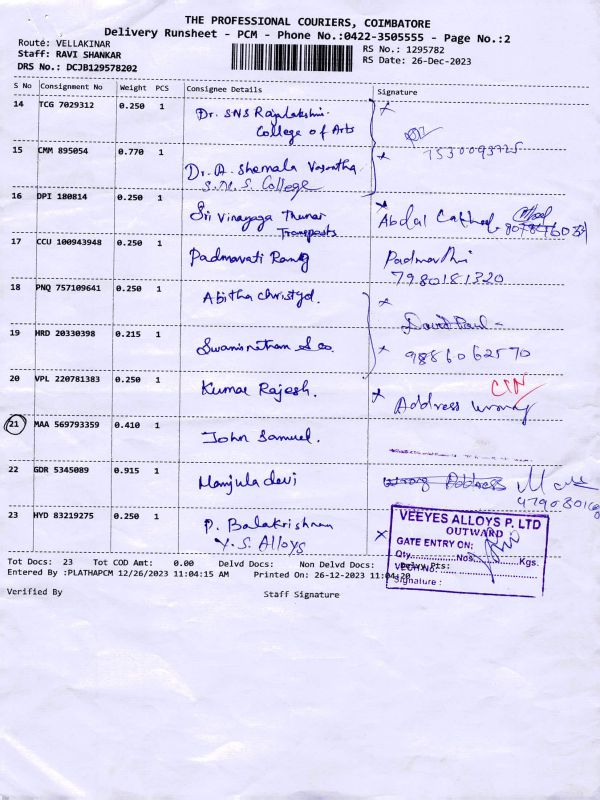 THE PROFESSIONAL COURIERS, COIMBATORE
Delivery Runsheet - PCM - Phone No.:0422-3505555 - Page No.:2
Route: VELLAKINAR
RS No.: 1295782
Staff: RAVI SHANKAR
RS Date: 26-Dec-2023
DRS No.: DCJB129578202
S No Consignment No Weight PCS Consignee Details Signature
14 TCG 7029312 0.250 1 Dr. SNS Rajalakshmi
College of Arts
15 CMM 895054 0.770 1 7530093725
Dr. A. Shemala Vasantha
S.N.S. College
16 DPI 180814 0.250 1 Sri Vinayaga Thunai Abdal
Transports
17 CCU 100943948 0.250 1 Padmavati Rang Padmavathi
7980181320
18 PNQ 757109641 0.250 1 Abitha Christyd.
David Paul
19 HRD 20330398 0.215 1 Swaminathan & co. 9886062570
20 VPL 220781383 0.250 1 Kumar Rajesh. Address wrong
21 MAA 569793359 0.410 1 John Samuel.
22 GDR 5345089 0.915 1 Manjula devi Wrong Address
23 HYD 83219275 0.250 1 P. Balakrishnan
Y.S. Alloys
VEEYES ALLOYS P. LTD
OUTWARD
GATE ENTRY ON:
Qty.............Nos.............Kgs.
VECH No. :
Signature :
Tot Docs: 23 Tot COD Amt: 0.00 Delvd Docs: Non Delvd Docs: Delvy Pts:
Entered By :PLATHAPCM 12/26/2023 11:04:15 AM Printed On: 26-12-2023 11:04:20
Verified By Staff Signature